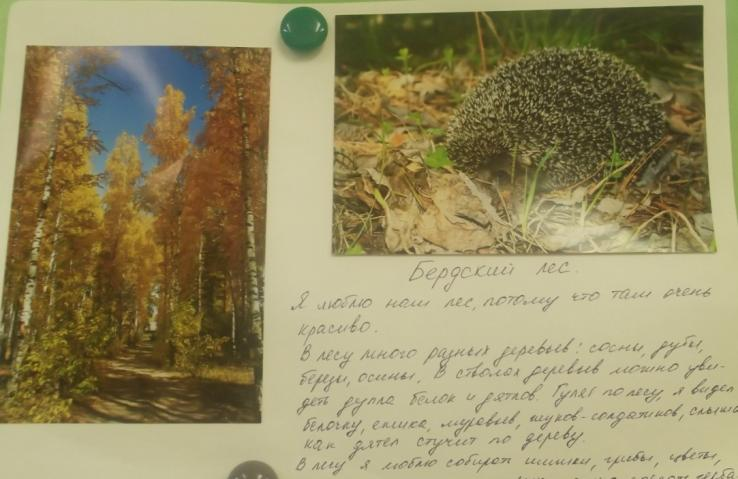 Бердский лес.
Я люблю наш лес, потому что там очень
красиво.
В лесу много разных деревьев: сосны, дубы,
березы, осины. В стволах деревьев можно уви-
деть дупла белок и дятлов. Гуляя по лесу, я видел
белочку, ежика, муравьев, жуков-солдатиков, слышал
как дятел стучит по дереву.
В лесу я люблю собирать шишки, грибы, цветы,